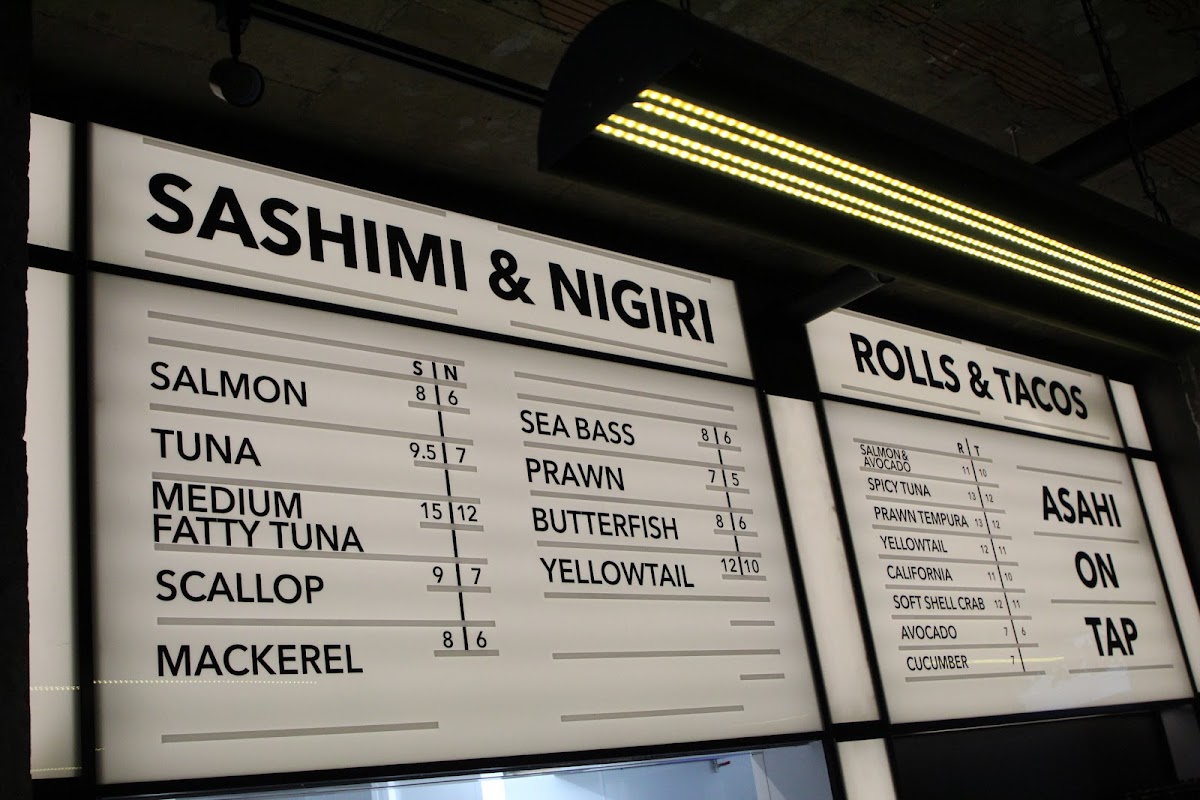 SASHIMI & NIGIRI
S | N
SALMON 8 | 6
TUNA 9.5 | 7
MEDIUM
FATTY TUNA 15 | 12
SCALLOP 9 | 7
MACKEREL 8 | 6
SEA BASS 8 | 6
PRAWN 7 | 5
BUTTERFISH 8 | 6
YELLOWTAIL 12 | 10
ROLLS & TACOS
R | T
SALMON &
AVOCADO 11 | 10
SPICY TUNA 13 | 12
PRAWN TEMPURA 13 | 12
YELLOWTAIL 12 | 11
CALIFORNIA 11 | 10
SOFT SHELL CRAB 12 | 11
AVOCADO 7 | 6
CUCUMBER 7
ASAHI
ON
TAP